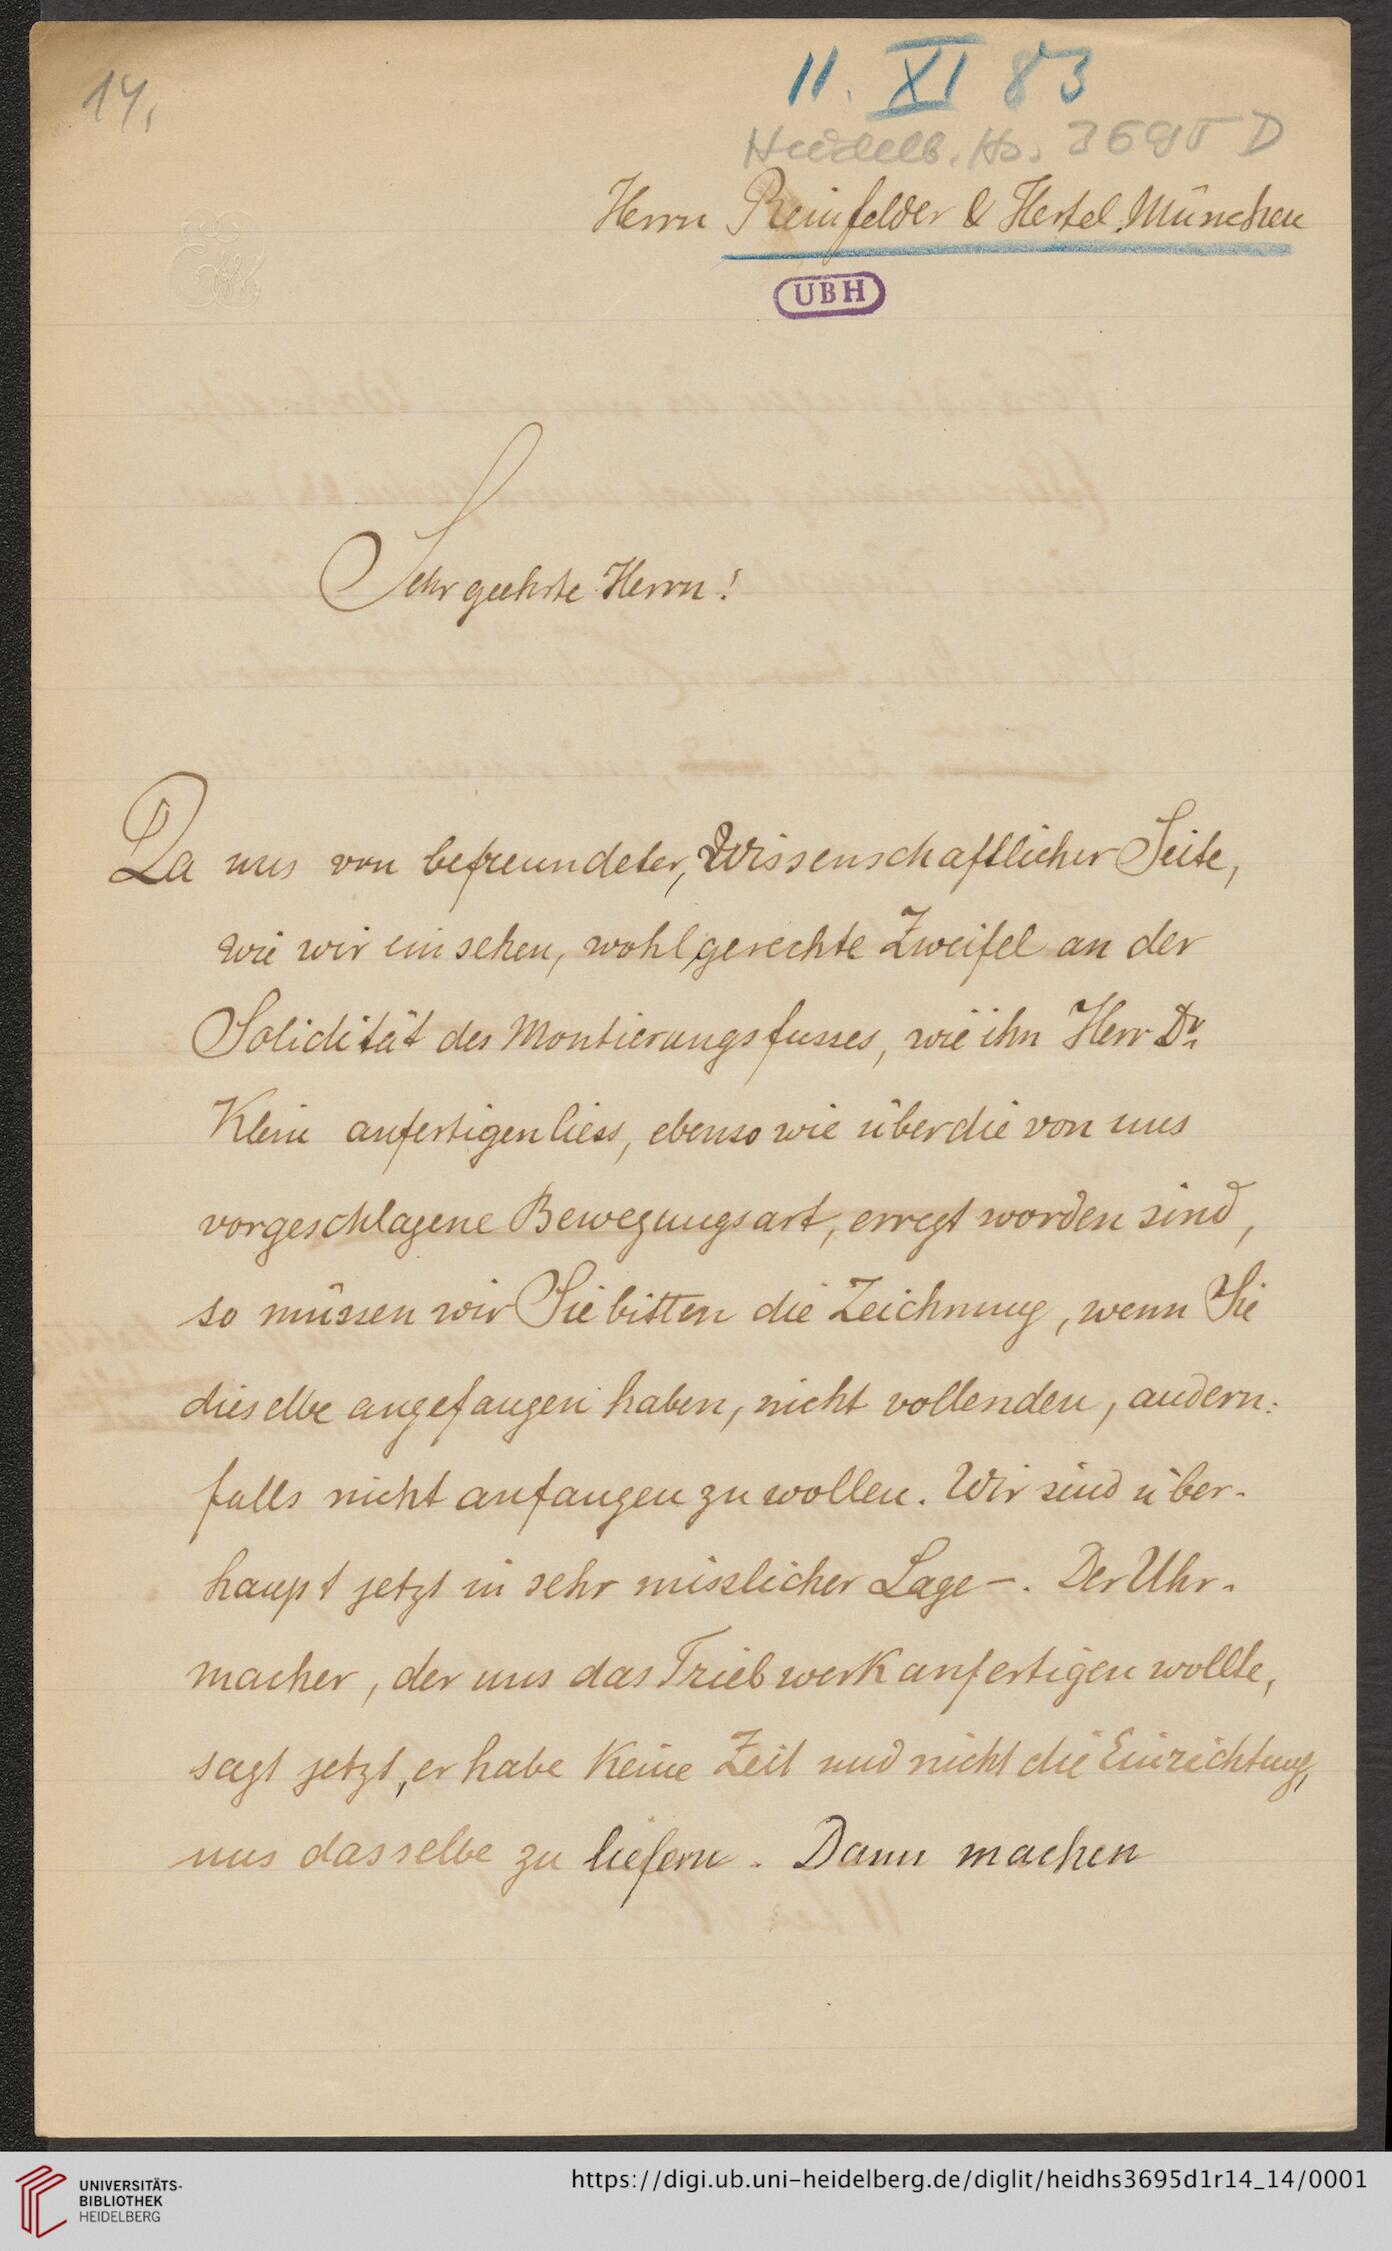 14.
11. XI 83
Heidelb. Hs. 3695 D
Herrn Reinfelder & Hertel. München
UBH
Sehr geehrte Herrn!
Da uns von befreundeter, wissenschaftlicher Seite,
wie wir ein sehen, wohl gerechte Zweifel an der
Solidität des Montierungsfusses, wie ihn Herr Dr.
Klein anfertigen liess, ebenso wie über die von uns
vorgeschlagene Bewegungsart, erregt worden sind,
so müssen wir Sie bitten die Zeichnung, wenn Sie
dieselbe angefangen haben, nicht vollenden, andern-
falls nicht anfangen zu wollen. Wir sind über-
haupt jetzt in sehr misslicher Lage –. Der Uhr-
macher, der uns das Triebwerk anfertigen wollte,
sagt jetzt, er habe keine Zeit und nicht die Einrichtung,
uns dasselbe zu liefern. Dann machen
UNIVERSITÄTS-
BIBLIOTHEK
HEIDELBERG
https://digi.ub.uni-heidelberg.de/diglit/heidhs3695d1r14_14/0001